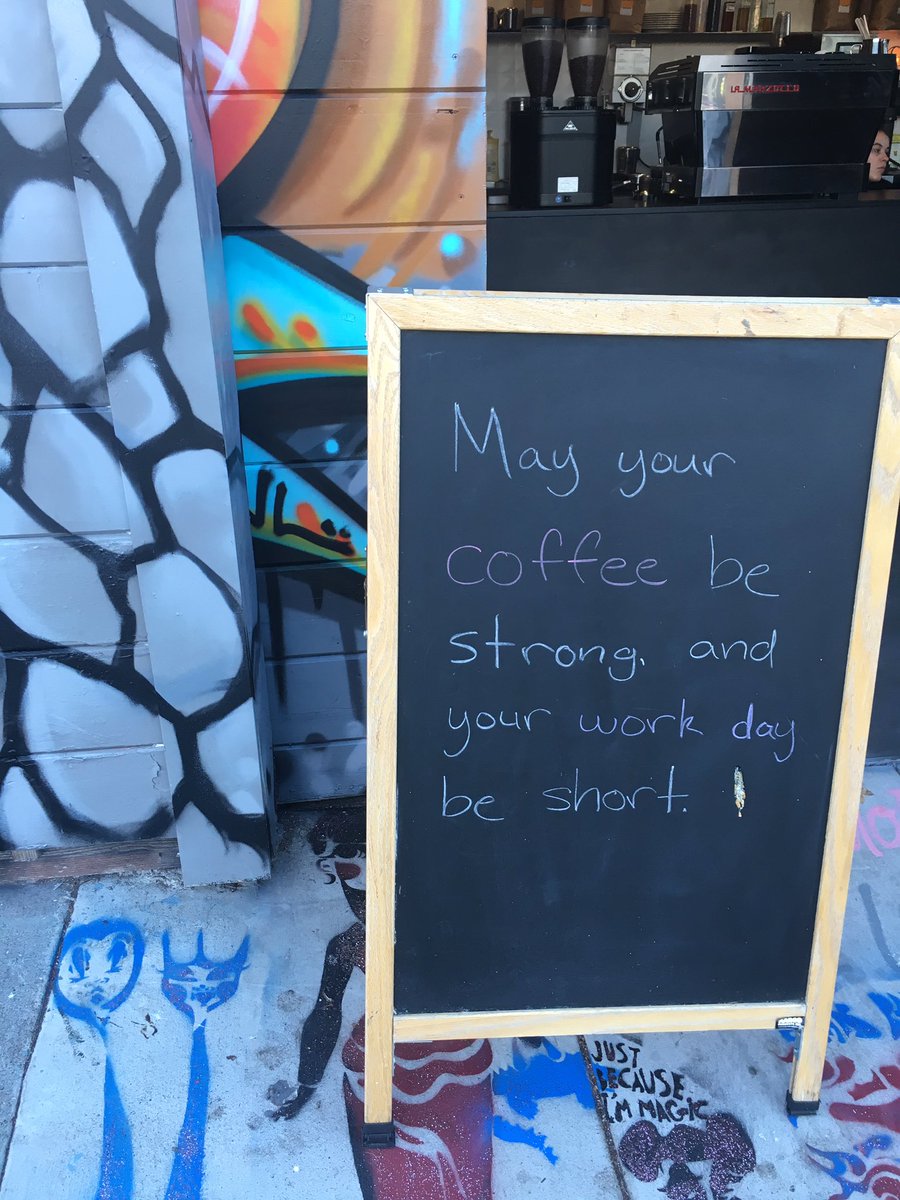 LA MARZOCCO
May your
coffee be
strong, and
your work day
be short.
JUST
BECAUSE
I'M MAGIC